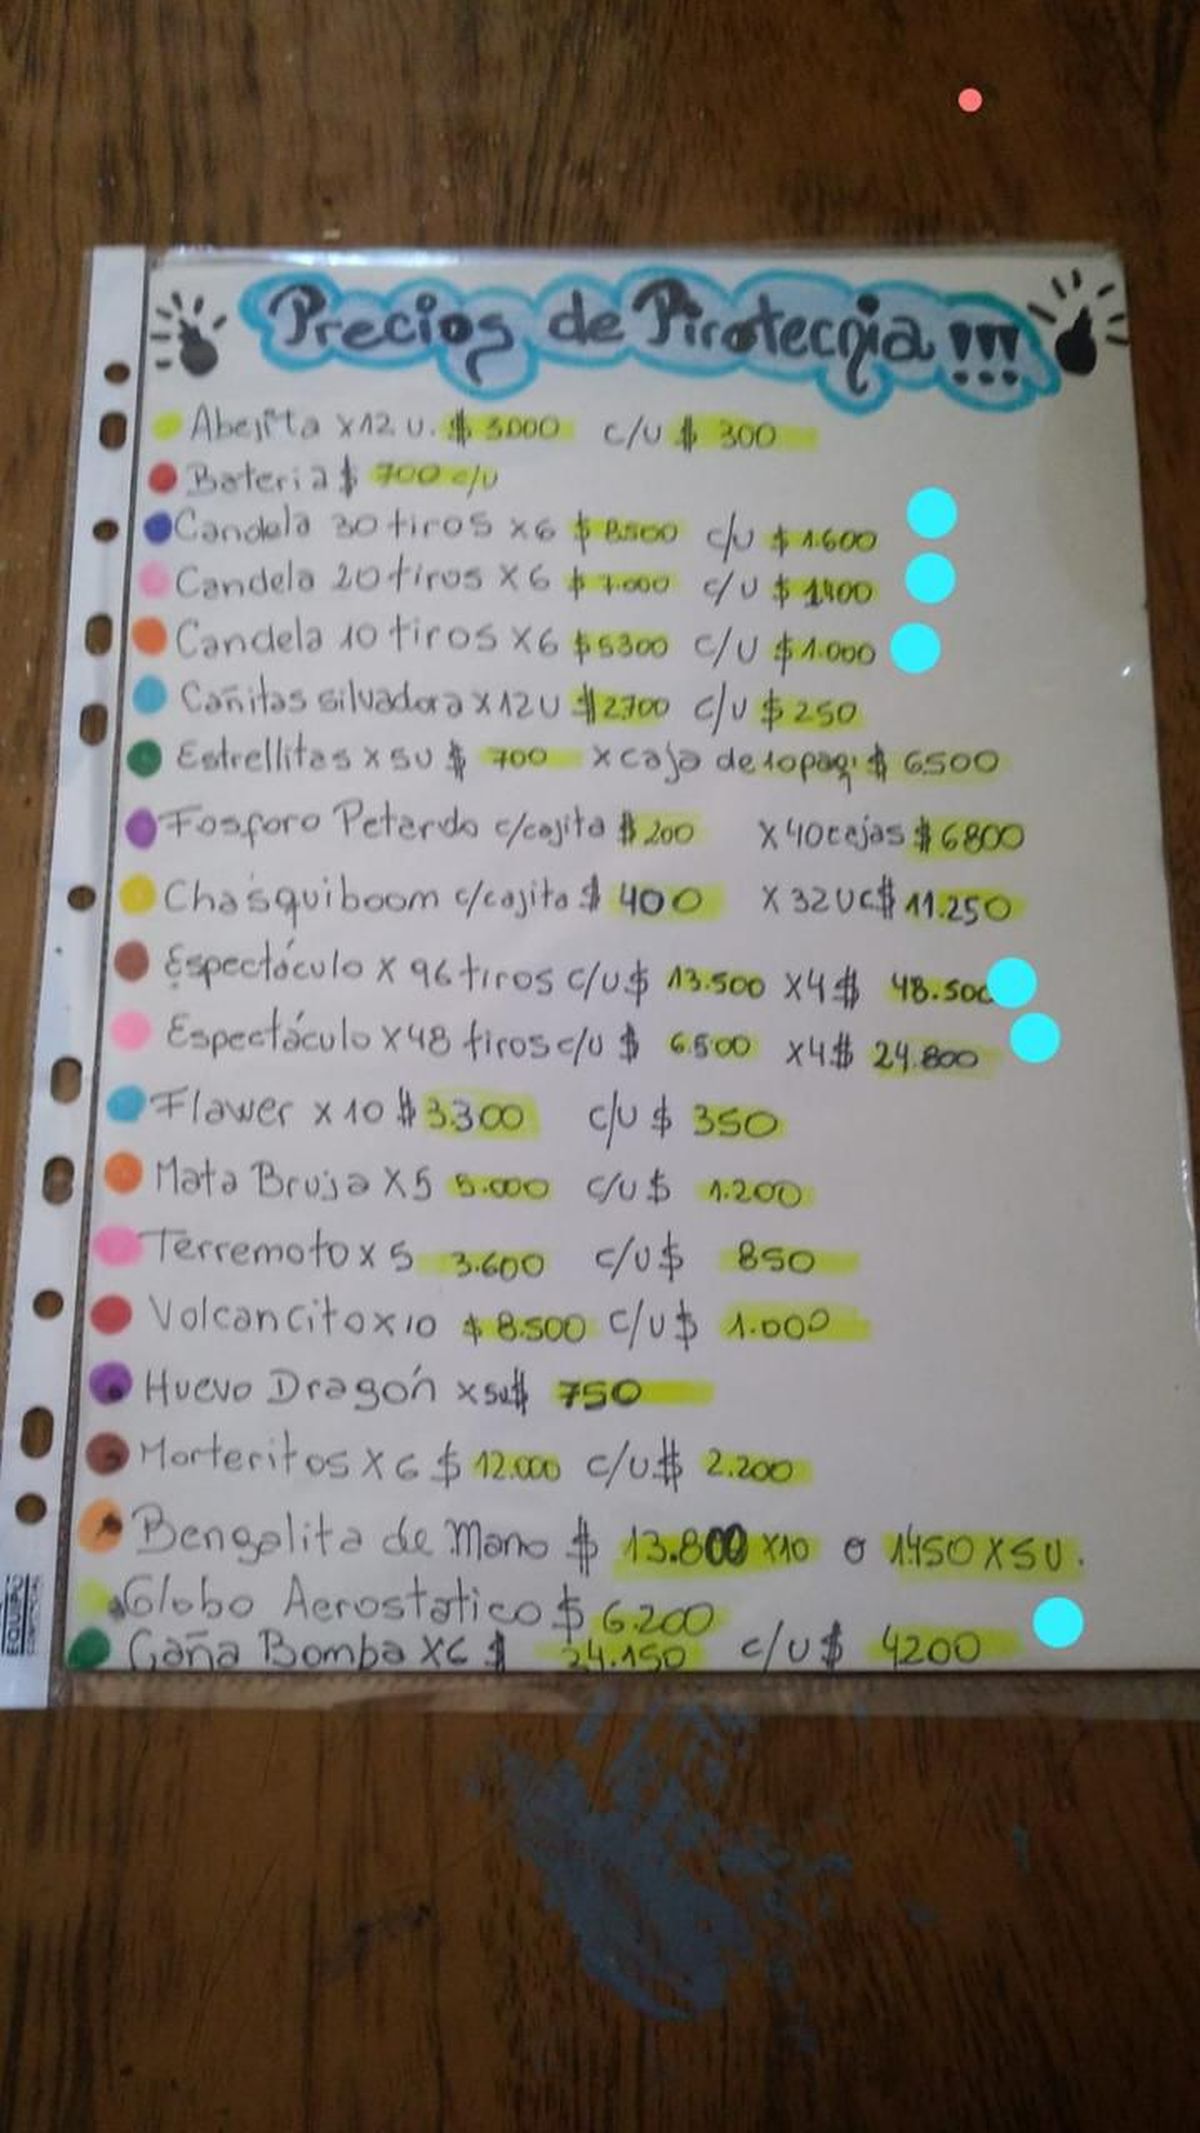 Precios de Pirotecnia !!!
Abejita x12 u. $ 3.000 c/u $ 300
Bateria $ 700 c/u
Candela 30 tiros x6 $ 8500 c/u $ 1.600
Candela 20 tiros x6 $ 7.000 c/u $ 1400
Candela 10 tiros x6 $5300 c/u $1.000
Cañitas silvadora x12 u $2700 c/u $ 250
Estrellitas x 5u $ 700 x caja de 10 paq. $ 6500
Fosforo Petardo c/cajita $ 200 x 40 cajas $ 6800
Chasquiboom c/cajita $ 400 x 32 u c $ 11.250
Espectáculo x 96 tiros c/u $ 13.500 x4 $ 48.500
Espectáculo x48 tiros c/u $ 6.500 x4 $ 24.800
Flawer x 10 $ 3.300 c/u $ 350
Mata Bruja x5 5.000 c/u $ 1.200
Terremoto x 5 3.600 c/u $ 850
Volcancito x10 $ 8.500 c/u $ 1.000
Huevo Dragón x5u $ 750
Morteritos x 6 $ 12.000 c/u $ 2.200
Bengalita de Mano $ 13.800 x10 o 1450 x 5 u.
Globo Aerostatico $ 6.200
Caña Bomba x6 $ 24.150 c/u $ 4200
EQUIPO